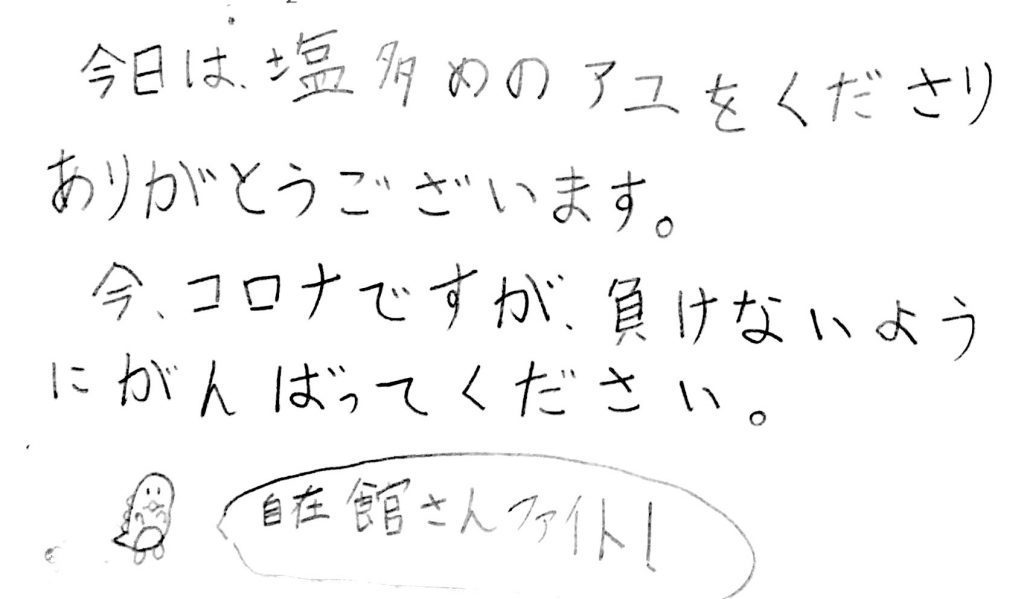 今日は、塩多めのアユをくださり
ありがとうございます。
今、コロナですが、負けないよう
にがんばってください。
自在館さんファイト!